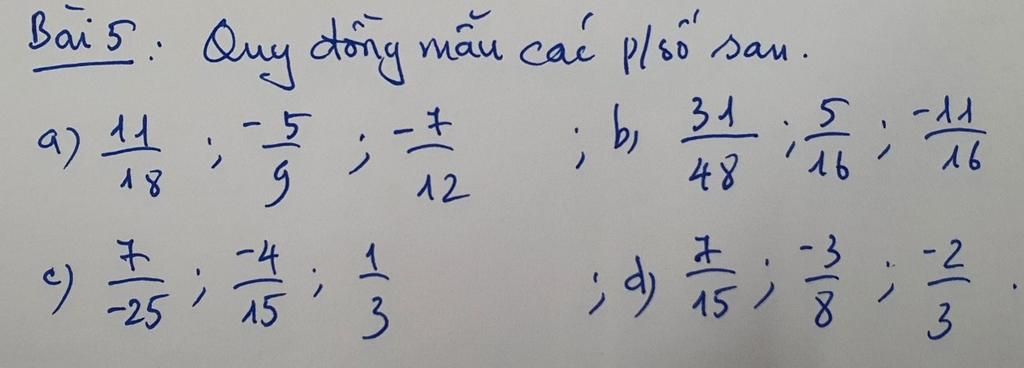 Bài 5. Quy đồng mẫu các p/số sau.
a) 11/18 ; -5/9 ; -7/12 ; b) 31/48 ; 5/16 ; -11/16
c) 7/-25 ; -4/15 ; 1/3 ; d) 7/15 ; -3/8 ; -2/3 .